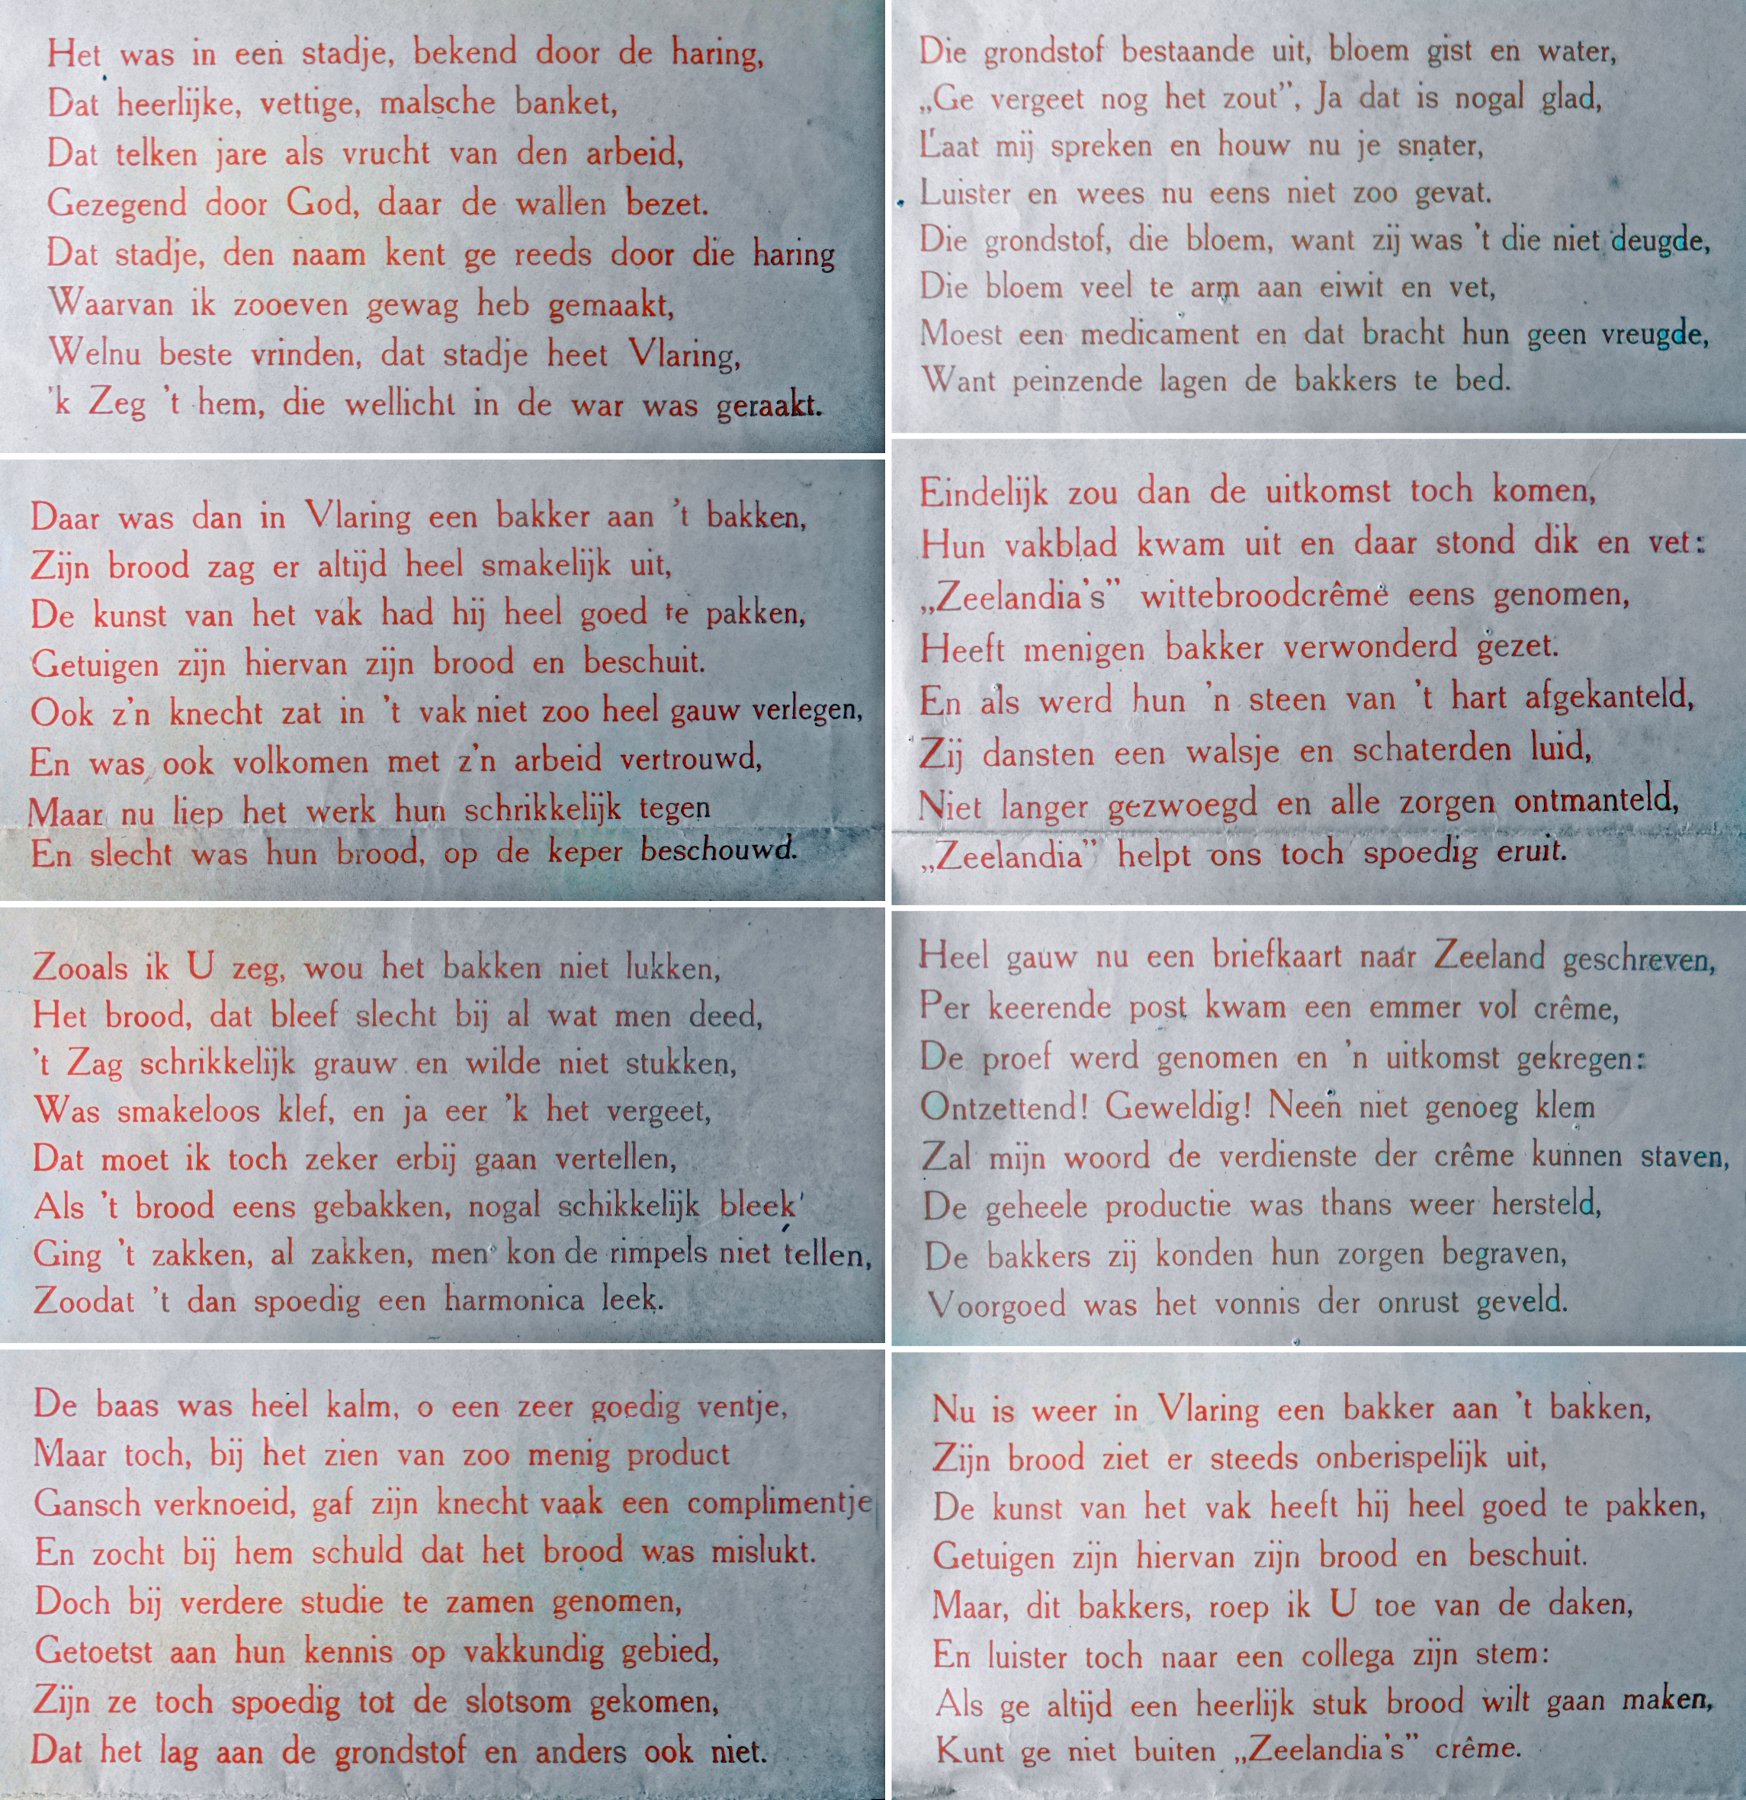 Het was in een stadje, bekend door de haring,
Dat heerlijke, vettige, malsche banket,
Dat telken jare als vrucht van den arbeid,
Gezegend door God, daar de wallen bezet.
Dat stadje, den naam kent ge reeds door die haring
Waarvan ik zooeven gewag heb gemaakt,
Welnu beste vrinden, dat stadje heet Vlaring,
'k Zeg 't hem, die wellicht in de war was geraakt.
Daar was dan in Vlaring een bakker aan 't bakken,
Zijn brood zag er altijd heel smakelijk uit,
De kunst van het vak had hij heel goed te pakken,
Getuigen zijn hiervan zijn brood en beschuit.
Ook z'n knecht zat in 't vak niet zoo heel gauw verlegen,
En was ook volkomen met z'n arbeid vertrouwd,
Maar nu liep het werk hun schrikkelijk tegen
En slecht was hun brood, op de keper beschouwd.
Zooals ik U zeg, wou het bakken niet lukken,
Het brood, dat bleef slecht bij al wat men deed,
't Zag schrikkelijk grauw en wilde niet stukken,
Was smakeloos klef, en ja eer 'k het vergeet,
Dat moet ik toch zeker erbij gaan vertellen,
Als 't brood eens gebakken, nogal schikkelijk bleek
Ging 't zakken, al zakken, men kon de rimpels niet tellen,
Zoodat 't dan spoedig een harmonica leek.
De baas was heel kalm, o een zeer goedig ventje,
Maar toch, bij het zien van zoo menig product
Gansch verknoeid, gaf zijn knecht vaak een complimentje
En zocht bij hem schuld dat het brood was mislukt.
Doch bij verdere studie te zamen genomen,
Getoetst aan hun kennis op vakkundig gebied,
Zijn ze toch spoedig tot de slotsom gekomen,
Dat het lag aan de grondstof en anders ook niet.
Die grondstof bestaande uit, bloem gist en water,
„Ge vergeet nog het zout”, Ja dat is nogal glad,
Laat mij spreken en houw nu je snater,
Luister en wees nu eens niet zoo gevat.
Die grondstof, die bloem, want zij was 't die niet deugde,
Die bloem veel te arm aan eiwit en vet,
Moest een medicament en dat bracht hun geen vreugde,
Want peinzende lagen de bakkers te bed.
Eindelijk zou dan de uitkomst toch komen,
Hun vakblad kwam uit en daar stond dik en vet:
„Zeelandia's” wittebroodcrême eens genomen,
Heeft menigen bakker verwonderd gezet.
En als werd hun 'n steen van 't hart afgekanteld,
Zij dansten een walsje en schaterden luid,
Niet langer gezwoegd en alle zorgen ontmanteld,
„Zeelandia” helpt ons toch spoedig eruit.
Heel gauw nu een briefkaart naar Zeeland geschreven,
Per keerende post kwam een emmer vol crême,
De proef werd genomen en 'n uitkomst gekregen:
Ontzettend! Geweldig! Neen niet genoeg klem
Zal mijn woord de verdienste der crême kunnen staven,
De geheele productie was thans weer hersteld,
De bakkers zij konden hun zorgen begraven,
Voorgoed was het vonnis der onrust geveld.
Nu is weer in Vlaring een bakker aan 't bakken,
Zijn brood ziet er steeds onberispelijk uit,
De kunst van het vak heeft hij heel goed te pakken,
Getuigen zijn hiervan zijn brood en beschuit.
Maar, dit bakkers, roep ik U toe van de daken,
En luister toch naar een collega zijn stem:
Als ge altijd een heerlijk stuk brood wilt gaan maken,
Kunt ge niet buiten „Zeelandia's” crême.